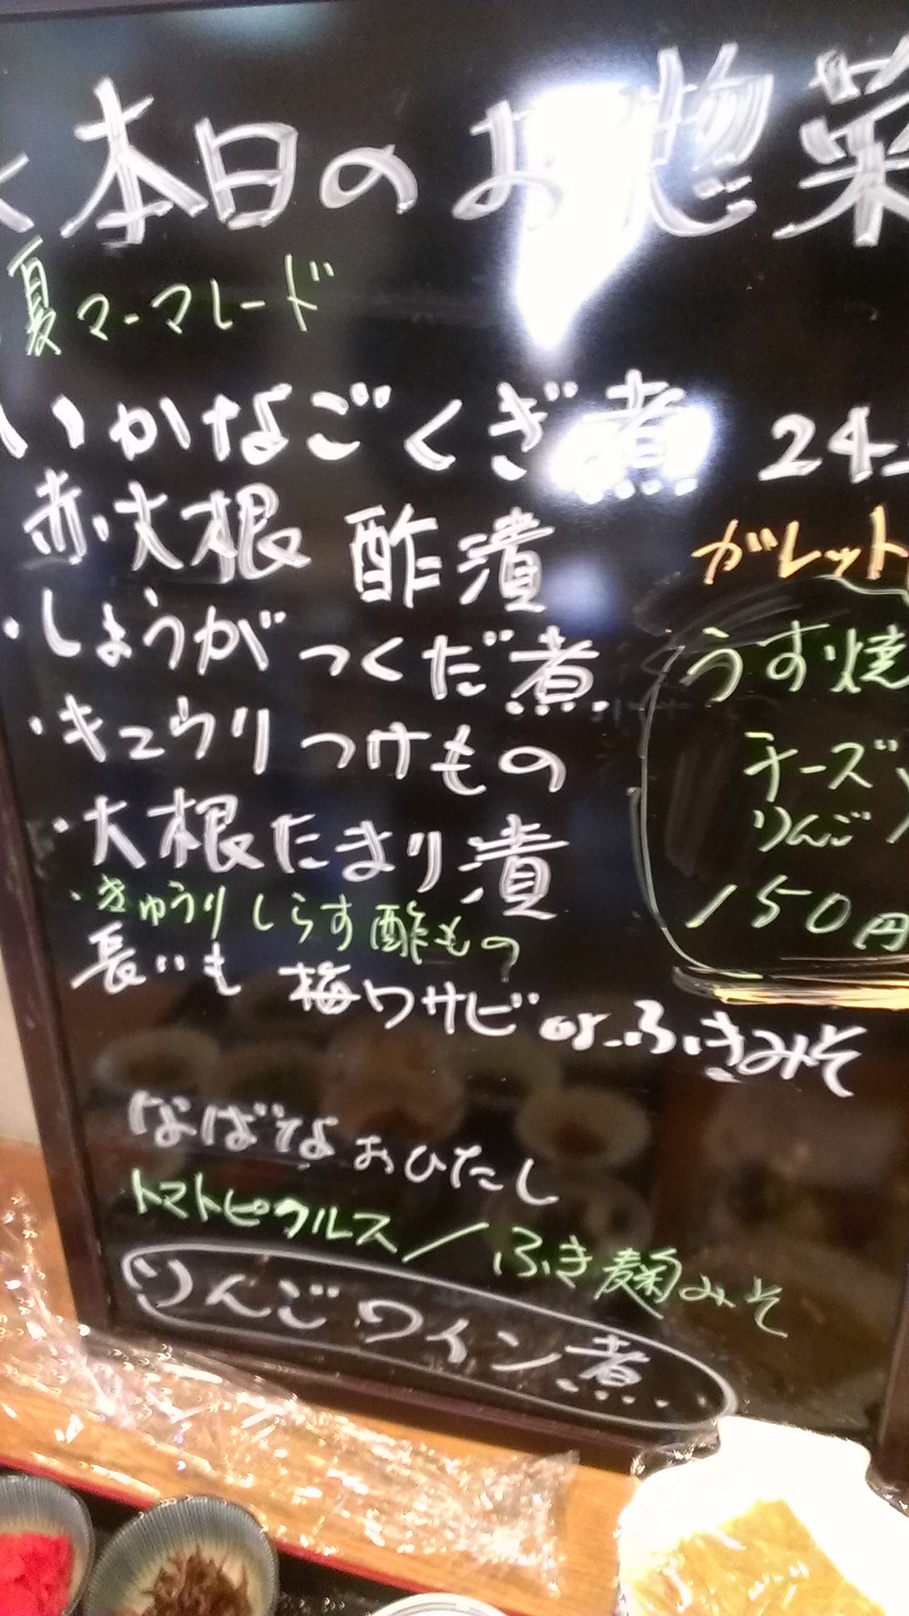 本日のお惣菜
夏マーマレード
いかなごくぎ煮
赤大根 酢漬
・しょうが つくだ煮
・キュウリ つけもの
・大根たまり漬
・きゅうりしらす酢もの
長いも 梅ワサビ or ふきみそ
なばな おひたし
トマトピクルス／ふき麹みそ
りんごワイン煮
24
ガレット
うす焼
チーズ
りんご
150円